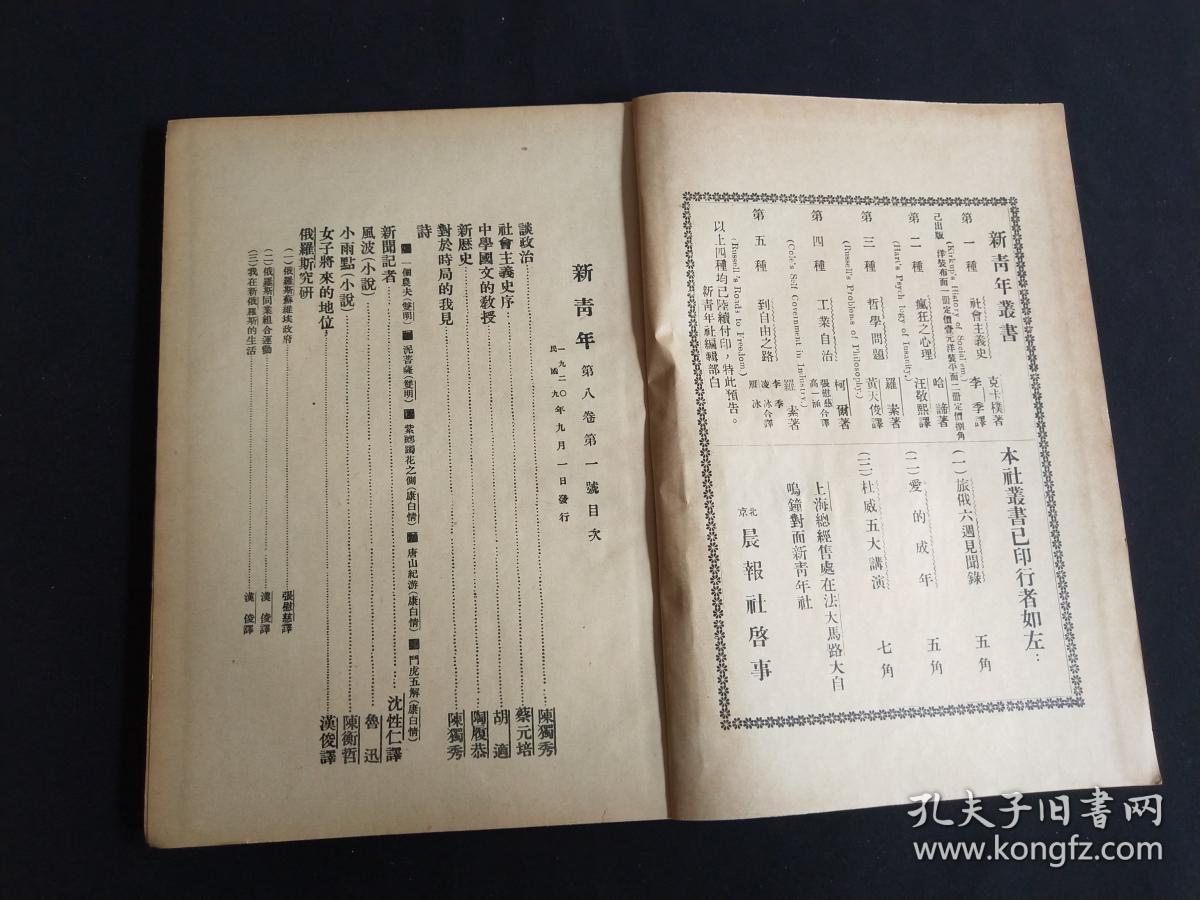 新靑年叢書
第一種 社會主義史 克卡樸著 李季譯
(Kirkup's History of Socialism.)
己出版 洋裝布面一册定價壹元洋裝平面二册定價捌角
第二種 瘋狂之心理 哈諦著 汪敬熙譯
(Hart's Psych logy of Insanity.)
第三種 哲學問題 羅素著 黃天俊譯
(Russell's Problems of Philosophy.)
第四種 工業自治 柯爾著 張慰慈 高一涵合譯
(Cole's Self Government in Industry.)
第五種 到自由之路 羅素著 李季 凌冰 雁冰合譯
(Russell's Roads to Freedom.)
以上四種均已陸續付印，特此預告。
新靑年社編輯部白
本社叢書已印行者如左：
(一)旅俄六週見聞錄 五角
(二)愛的成年 五角
(三)杜威五大講演 七角
上海總經售處在法大馬路大自
鳴鐘對面新靑年社
北京 晨報社啓事
新靑年 第八卷第一號目次
一九二〇年九月一日發行
民國九
談政治 陳獨秀
社會主義史序 蔡元培
中學國文的敎授 胡適
新歷史 陶履恭
對於時局的我見 陳獨秀
詩
一個農夫(雙明) 泥菩薩(雙明) 紫躑躅花之側(康白情) 唐山紀游(康白情) 鬥虎五解(康白情)
新聞記者 沈性仁譯
風波(小說) 魯迅
小雨點(小說) 陳衡哲
女子將來的地位 漢俊譯
俄羅斯究研
(一)俄羅斯蘇維埃政府 張慰慈譯
(二)俄羅斯同業組合運動 漢俊譯
(三)我在新俄羅斯的生活 漢俊譯
孔夫子旧书网
www.kongfz.com